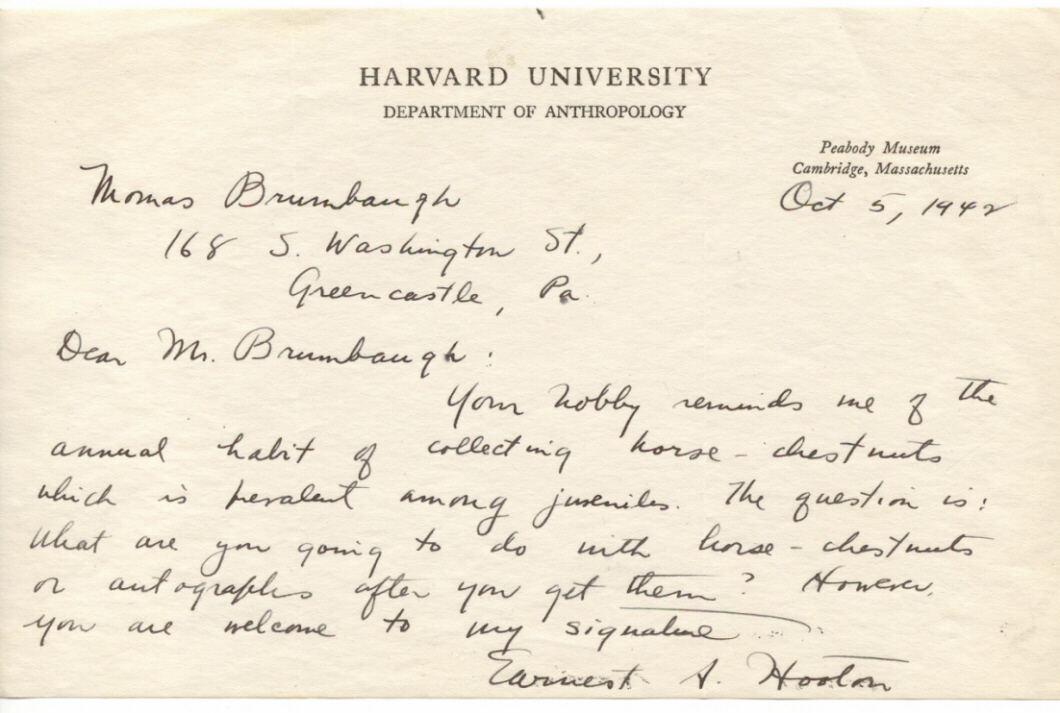 HARVARD UNIVERSITY
DEPARTMENT OF ANTHROPOLOGY
Peabody Museum
Cambridge, Massachusetts
Oct 5, 1942
Thomas Brumbaugh
168 S. Washington St.,
Greencastle, Pa.
Dear Mr. Brumbaugh:
Your hobby reminds me of the
annual habit of collecting horse-chestnuts
which is prevalent among juveniles. The question is:
What are you going to do with horse-chestnuts
or autographs after you get them? However,
you are welcome to my signature
Earnest A. Hooton